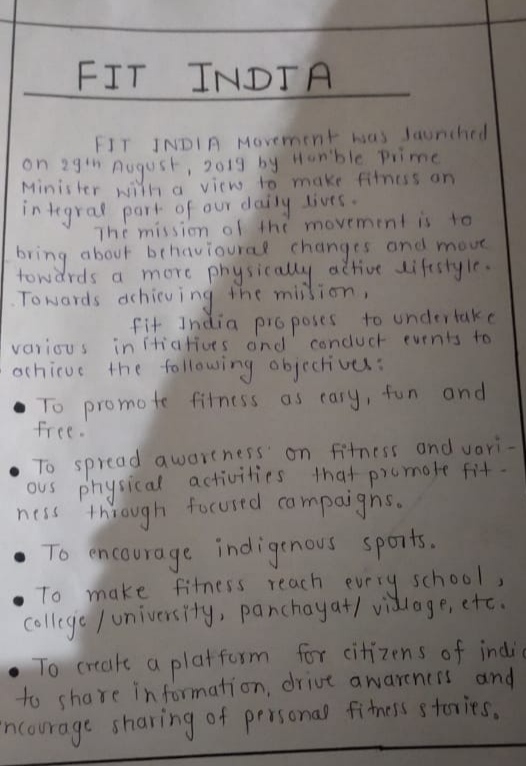 FIT INDIA
FIT INDIA Movement was launched
on 29th August, 2019 by Hon'ble Prime
Minister with a view to make fitness an
integral part of our daily lives.
The mission of the movement is to
bring about behavioural changes and move
towards a more physically active lifestyle.
Towards achieving the mission,
Fit India proposes to undertake
various initiatives and conduct events to
achieve the following objectives:
• To promote fitness as easy, fun and
free.
• To spread awareness on fitness and vari-
ous physical activities that promote fit-
ness through focused campaigns.
• To encourage indigenous sports.
• To make fitness reach every school,
college/university, panchayat/village, etc.
• To create a platform for citizens of indi
to share information, drive awareness and
ncourage sharing of personal fitness stories.